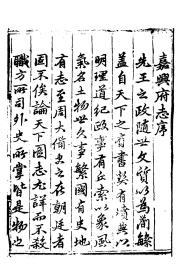 嘉興府志序
先王之政隨世久質以為簡繁
蓋自天下之有書契有墳典以
明理道紀政事有丘索以象風
氣名土物世久事繁國有史地
有志至周大備史之在朝廷者
固不俟論天下圖志尤詳而不殺
職方所司外史所掌皆是物也